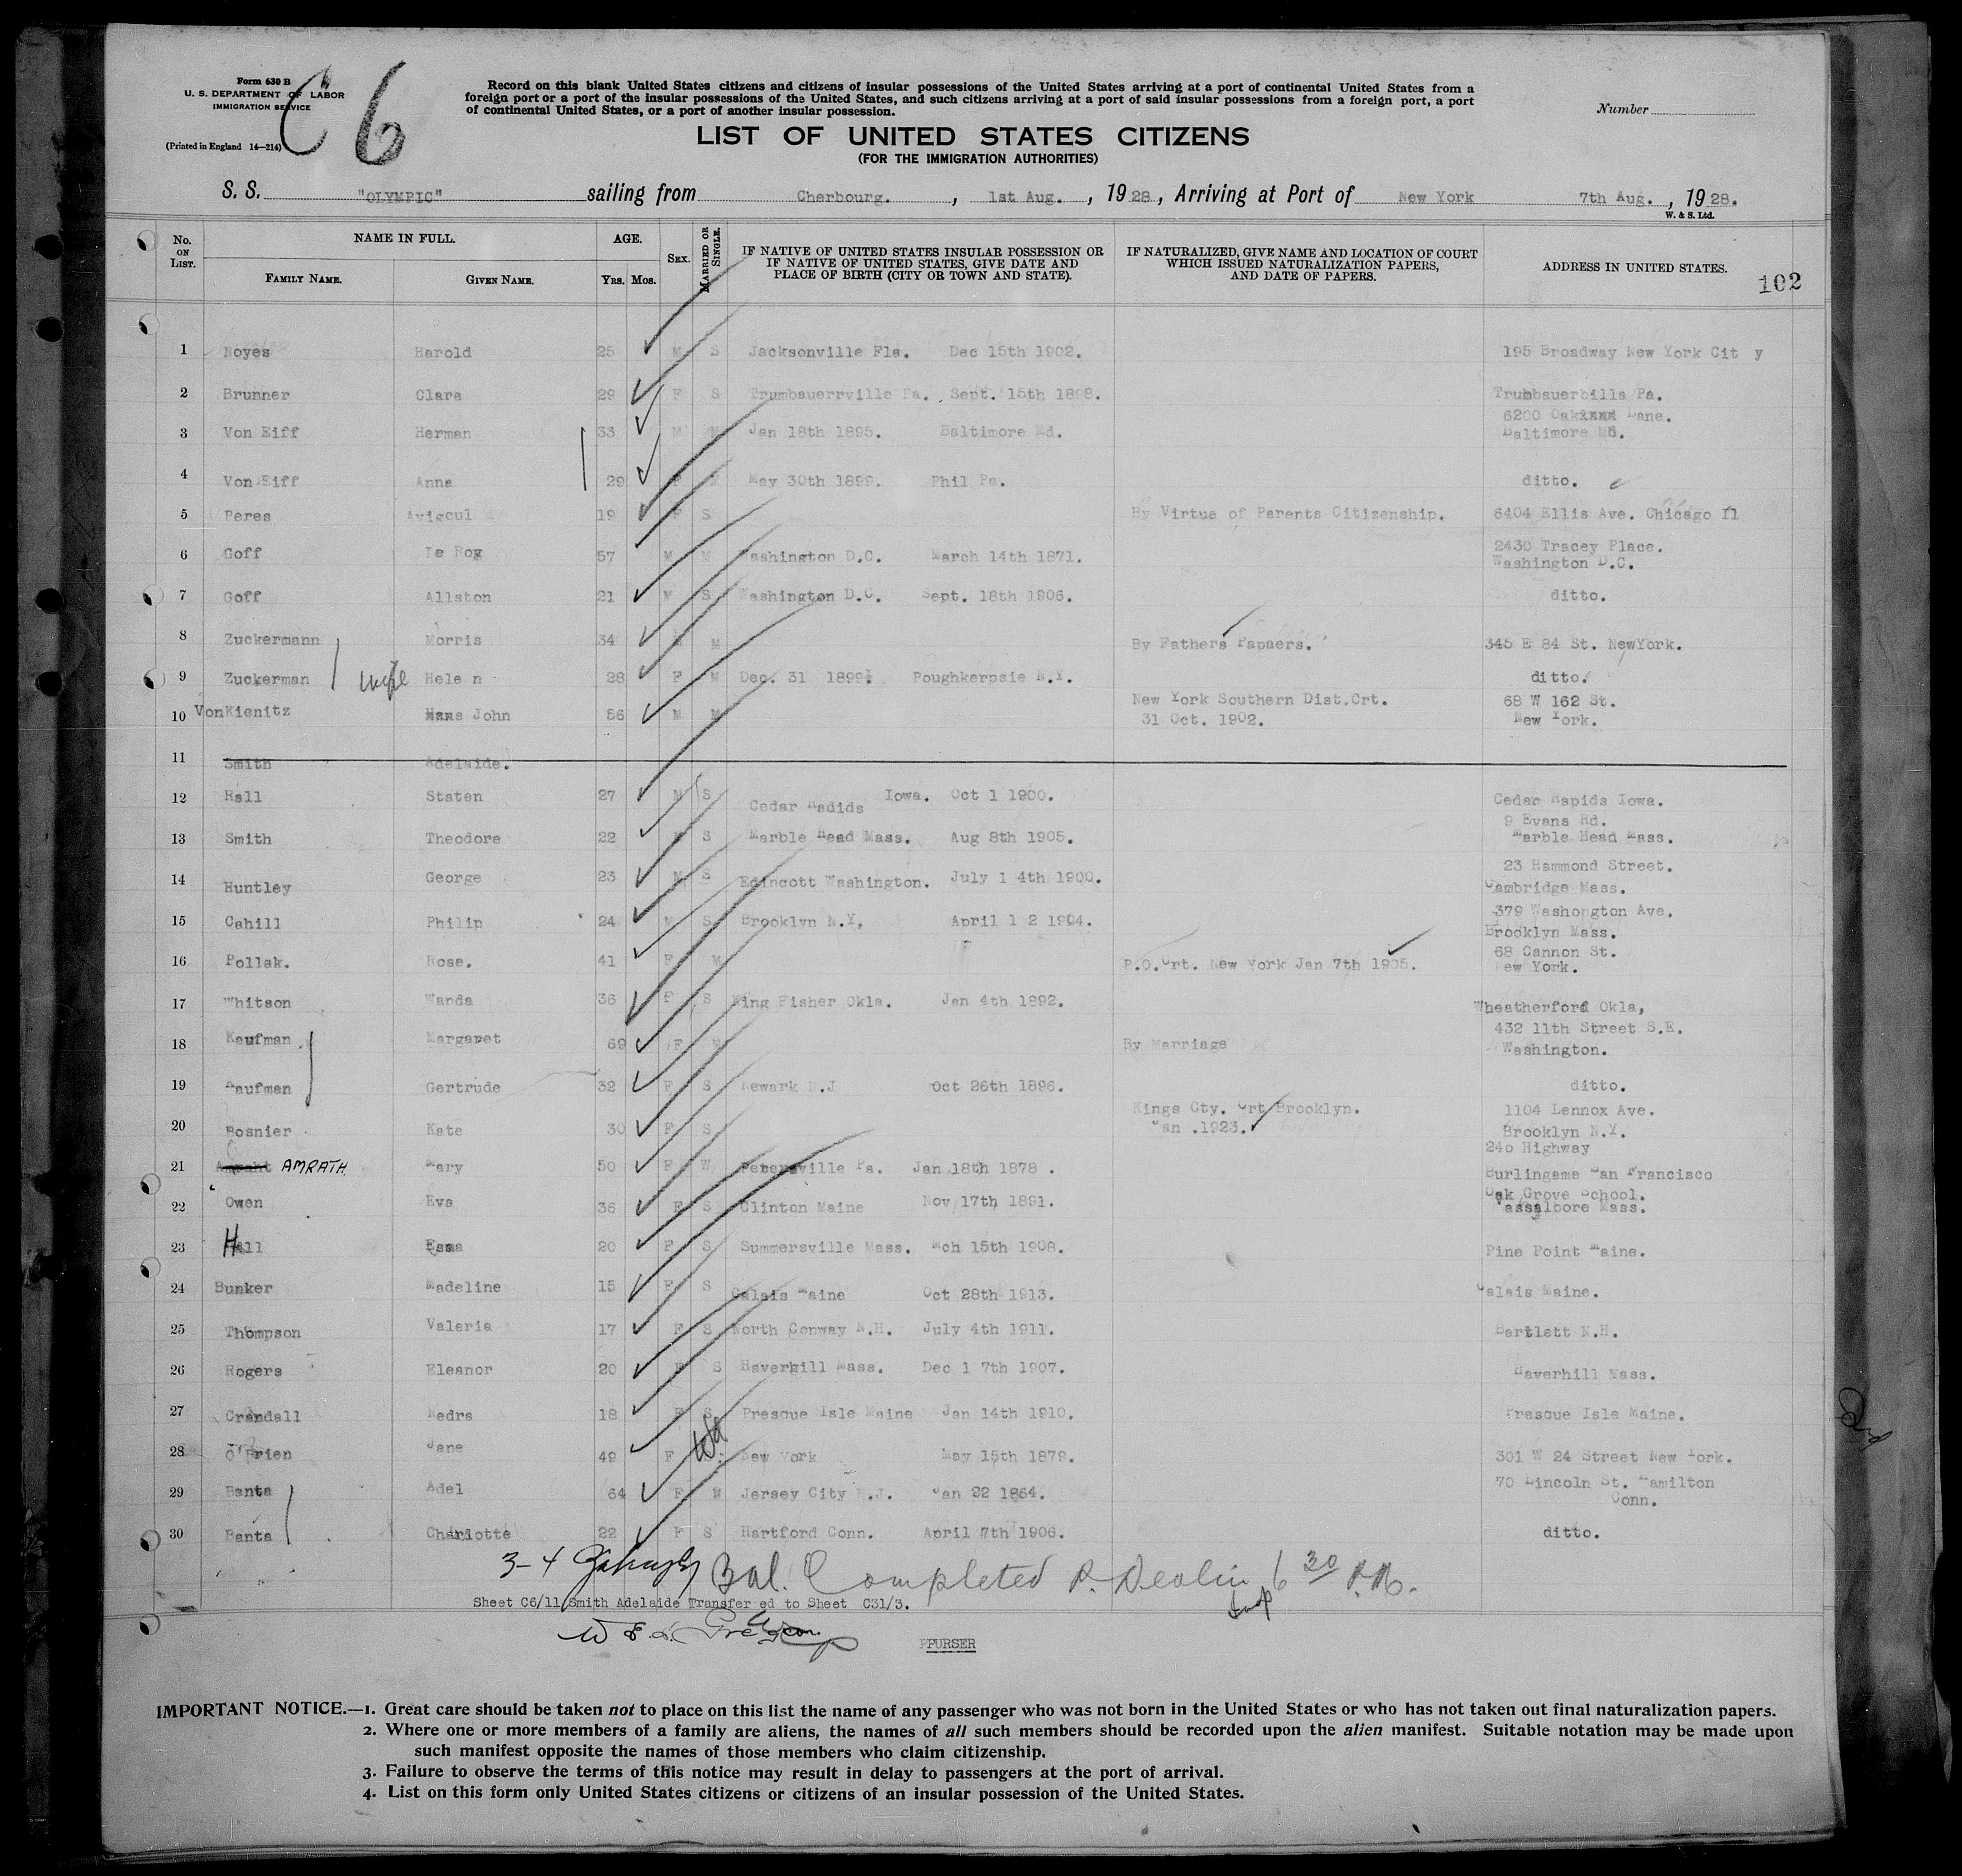 Form 630 B
U. S. DEPARTMENT OF LABOR
IMMIGRATION SERVICE
(Printed in England 14—214)
C 6
Record on this blank United States citizens and citizens of insular possessions of the United States arriving at a port of continental United States from a
foreign port or a port of the insular possessions of the United States, and such citizens arriving at a port of said insular possessions from a foreign port, a port
of continental United States, or a port of another insular possession.
Number
LIST OF UNITED STATES CITIZENS
(FOR THE IMMIGRATION AUTHORITIES)
S. S. "OLYMPIC" sailing from Cherbourg. , 1st Aug. , 1928, Arriving at Port of New York 7th Aug. , 1928.
W. & S. Ltd.
No. ON LIST. NAME IN FULL. FAMILY NAME. GIVEN NAME. AGE. YRS. MOS. SEX. MARRIED OR SINGLE. IF NATIVE OF UNITED STATES INSULAR POSSESSION OR IF NATIVE OF UNITED STATES, GIVE DATE AND PLACE OF BIRTH (CITY OR TOWN AND STATE). IF NATURALIZED, GIVE NAME AND LOCATION OF COURT WHICH ISSUED NATURALIZATION PAPERS, AND DATE OF PAPERS. ADDRESS IN UNITED STATES.
102
1 Noyes Harold 25 M S Jacksonville Fla. Dec 15th 1902. 195 Broadway New York Cit y
2 Brunner Clara 29 F S Trumbauerrville Pa. Sept. 15th 1898. Trumbauerbills Pa.
3 Von Eiff Herman 33 M M Jan 18th 1895. Baltimore Md. 6200 Oakxxxx Lane. Baltimore Md.
4 Von Eiff Anna 29 F M May 30th 1899. Phil Pa. ditto.
5 Peres Avigcul 19 F S By Virtue of Parents Citizenship. 6404 Ellis Ave. Chicago Il
6 Goff Le Roy 57 M M Washington D.C. March 14th 1871. 2430 Tracey Place. Washington D.C.
7 Goff Allston 21 M S Washington D.C. Sept. 18th 1906. ditto.
8 Zuckermann Morris 34 M M By Fathers Papaers. 345 E 84 St. NewYork.
9 Zuckerman wife Hele n 28 F M Dec. 31 1899 Poughkerpsie N.Y. ditto.
10 VonKienitz Hans John 56 M M New York Southern Dist.Crt. 31 Oct. 1902. 68 W 162 St. New York.
11 Smith Adelaide.
12 Hall Staten 27 M S Cedar Radids Iowa. Oct 1 1900. Cedar Rapids Iowa.
13 Smith Theodore 22 M S Marble Head Mass. Aug 8th 1905. 9 Evans Rd. Marble Head Mass.
14 Huntley George 23 M S Edincott Washington. July 1 4th 1900. 23 Hammond Street. Cambridge Mass.
15 Cahill Philip 24 M S Brooklyn N.Y, April 1 2 1904. 379 Washongton Ave. Brooklyn Mass.
16 Pollak. Rose. 41 F M P.O.Crt. New York Jan 7th 1905. 68 Cannon St. New York.
17 Whitson Wanda 36 F S King Fisher Okla. Jan 4th 1892. Wheatherford Okla,
18 Kaufman Margaret 69 F M By Marriage 432 11th Street S.E. Washington.
19 Kaufman Gertrude 32 F S Newark N.J Oct 26th 1896. ditto.
20 Bosnier Kate 30 F S Kings Cty. Crt Brooklyn. Jan .1923. 1104 Lennox Ave. Brooklyn N.Y.
21 AMRATH Mary 50 F W Peversville Pa. Jan 18th 1878 . 240 Highway Burlingame San Francisco
22 Owen Eva 36 F S Clinton Maine Nov 17th 1891. Oak Grove School. Vassalbore Mass.
23 Hall 20 F S Summersville Mass. Mch 15th 1908. Pine Point Maine.
24 Bunker Madeline 15 F S Calais Maine Oct 28th 1913. Calais Maine.
25 Thompson Valeria 17 F S North Conway N.H. July 4th 1911. Bartlett N.H.
26 Rogers Eleanor 20 F S Haverhill Mass. Dec 1 7th 1907. Haverhill Mass.
27 Crandall Nedra 18 F S Presque Isle Maine Jan 14th 1910. Presque Isle Maine.
28 O'Brien Jane 49 F Wd New York May 15th 1879. 301 W 24 Street New York.
29 Banta Adel 64 F M Jersey City N.J. Jan 22 1864. 70 Lincoln St. Hamilton Conn.
30 Banta Charlotte 22 F S Hartford Conn. April 7th 1906. ditto.
3-4 Bal. Completed 6 30 P.M.
Sheet C6/11 Smith Adelaide Transfer ed to Sheet C31/3.
Insp
PPURSER
IMPORTANT NOTICE.—1. Great care should be taken not to place on this list the name of any passenger who was not born in the United States or who has not taken out final naturalization papers.
2. Where one or more members of a family are aliens, the names of all such members should be recorded upon the alien manifest. Suitable notation may be made upon
such manifest opposite the names of those members who claim citizenship.
3. Failure to observe the terms of this notice may result in delay to passengers at the port of arrival.
4. List on this form only United States citizens or citizens of an insular possession of the United States.